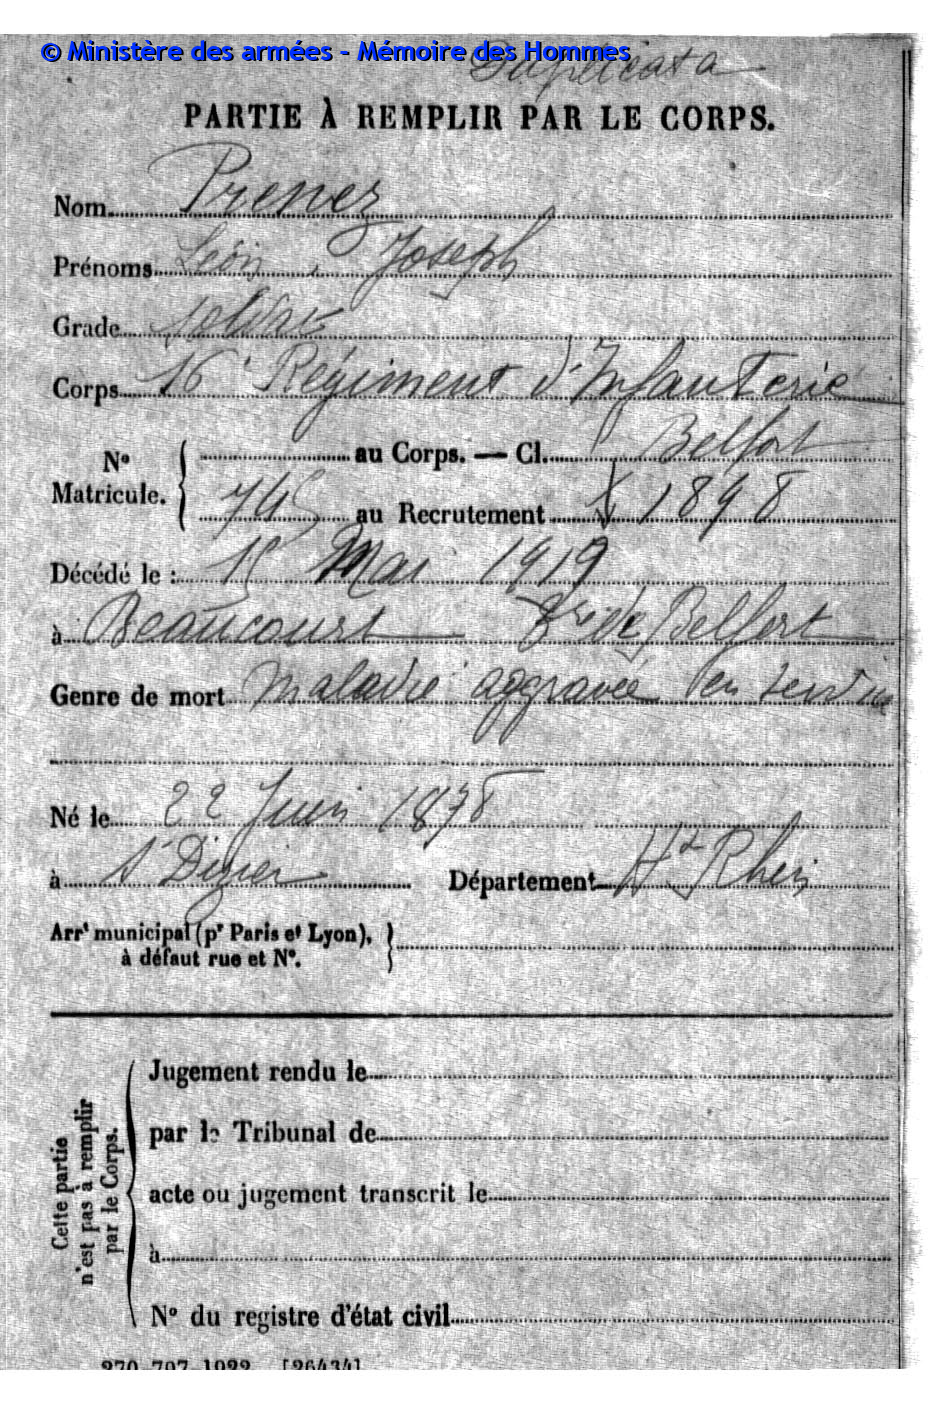 © Ministère des armées - Mémoire des Hommes
Duplicata
PARTIE À REMPLIR PAR LE CORPS.
Nom Prenez
Prénoms Léon, Joseph
Grade soldat
Corps 16e Régiment d'Infanterie
No Matricule. { au Corps. — Cl. Belfort
745 au Recrutement 1898
Décédé le : 15 Mai 1919
à Beaucourt Tre de Belfort
Genre de mort maladie aggravée en service
Né le 22 Juin 1878
à St Dizier Département Ht Rhin
Arrt municipal (pr Paris et Lyon), }
à défaut rue et No.
Cette partie n'est pas à remplir par le Corps.
Jugement rendu le
par le Tribunal de
acte ou jugement transcrit le
à
No du registre d'état civil
270-707-1922. [26434]